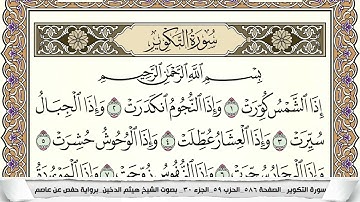 سُورَةُ التَّكْوِيرِ
بِسْمِ اللَّهِ الرَّحْمَٰنِ الرَّحِيمِ
إِذَا الشَّمْسُ كُوِّرَتْ ١ وَإِذَا النُّجُومُ انكَدَرَتْ ٢ وَإِذَا الْجِبَالُ
سُيِّرَتْ ٣ وَإِذَا الْعِشَارُ عُطِّلَتْ ٤ وَإِذَا الْوُحُوشُ حُشِرَتْ ٥
وَإِذَا الْبِحَارُ سُجِّرَتْ ٦ وَإِذَا النُّفُوسُ زُوِّجَتْ ٧ وَإِذَا
سورة التكوير _الصفحة ٥٨٦_الحزب ٥٩_الجزء ٣٠_ بصوت الشيخ هيثم الدخين_ برواية حفص عن عاصم